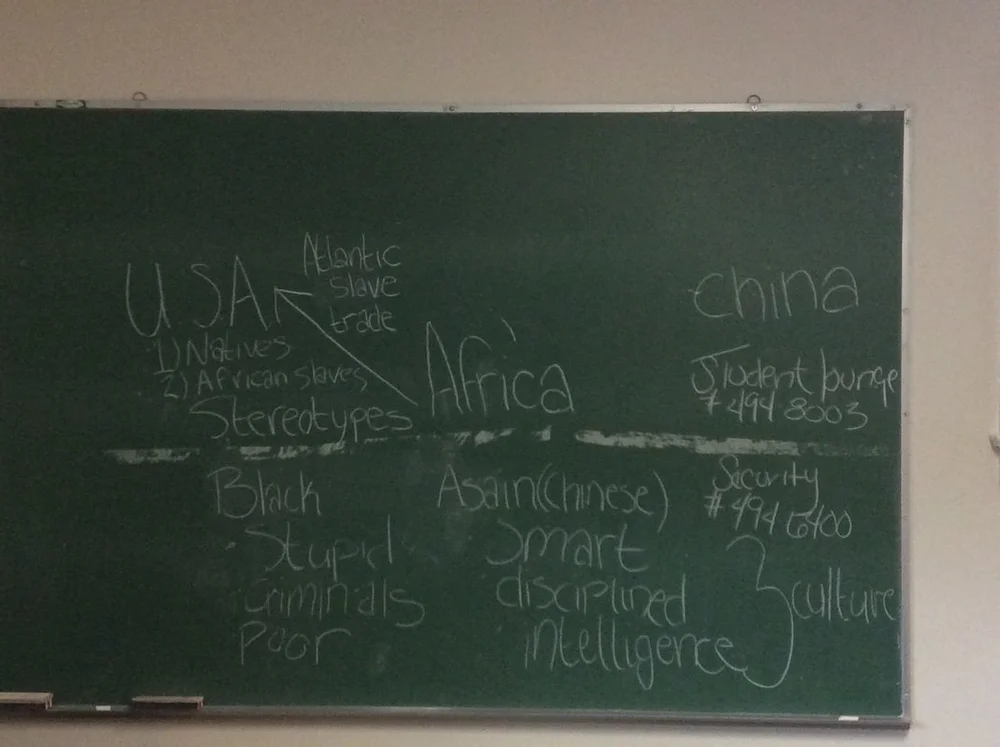 USA
Atlantic
slave
trade
1) Natives
2) African slaves
Stereotypes
Africa
China
Student lounge
# 494 8003
Black
Stupid
Criminals
Poor
Asain (Chinese)
Smart
disciplined
intelligence
Security
# 494 6400
culture